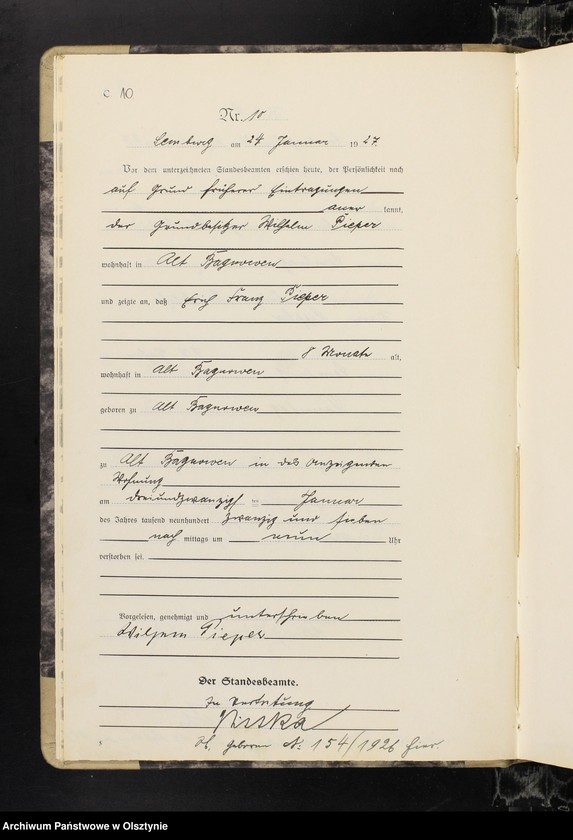 C 10
Nr. 10
Sensburg am 24 Januar 1927.
Vor dem unterzeichneten Standesbeamten erschien heute, der Persönlichkeit nach
auf Grund früherer Eintragungen
aner kannt,
der Grundbesitzer Wilhelm Pieper
wohnhaft in Alt Bagnowen
und zeigte an, daß Erich Franz Pieper
8 Monate alt,
wohnhaft in Alt Bagnowen
geboren zu Alt Bagnowen
zu Alt Bagnowen in des Anzeigenden
Wohnung
am dreiundzwanzigsten Januar
des Jahres tausend neunhundert zwanzig und sieben
nach mittags um neun Uhr
verstorben sei.
Vorgelesen, genehmigt und unterschrieben
Wilhelm Pieper
Der Standesbeamte.
In Vertretung
geboren N: 154/1926 hier.
Archiwum Państwowe w Olsztynie